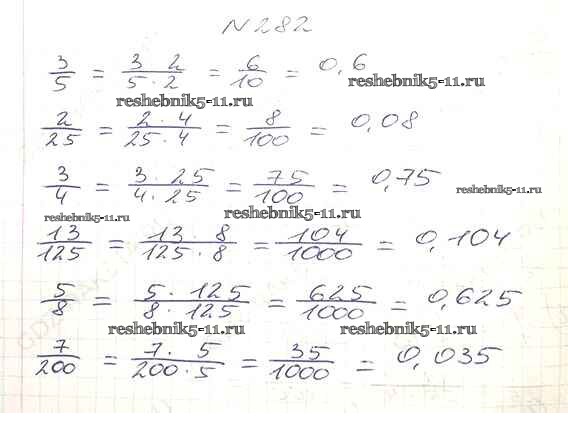 N 282
3/5 = 3 2/5 · 2 = 6/10 = 0,6
reshebnik5-11.ru
reshebnik5-11.ru
2/25 = 2 · 4/25 · 4 = 8/100 = 0,08
3/4 = 3 · 25/4 · 25 = 75/100 = 0,75
reshebnik5-11.ru
reshebnik5-11.ru
reshebnik5-11.ru
13/125 = 13 · 8/125 · 8 = 104/1000 = 0,104
5/8 = 5 · 125/8 · 125 = 625/1000 = 0,625
reshebnik5-11.ru
reshebnik5-11.ru
7/200 = 7 · 5/200 · 5 = 35/1000 = 0,035